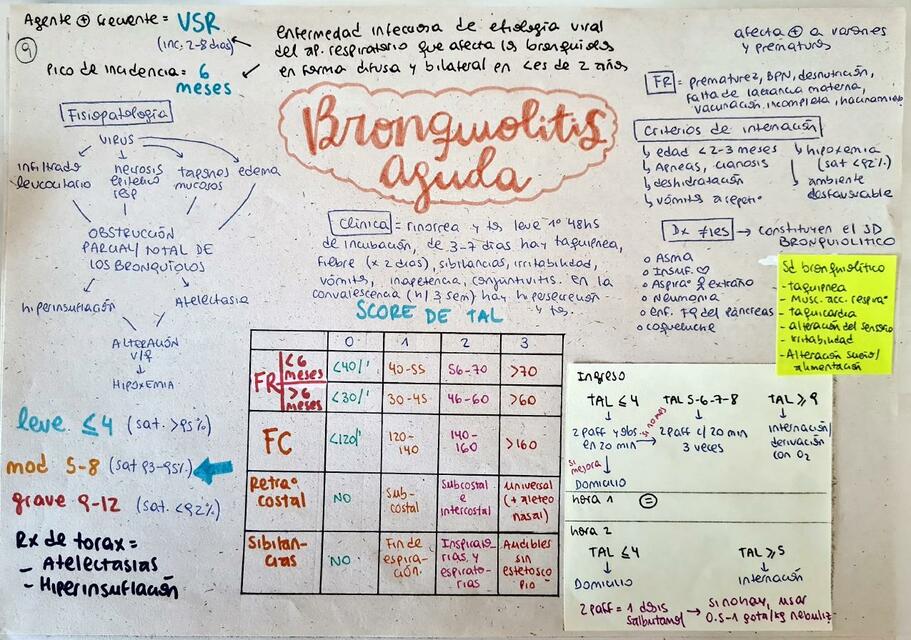 Agente ⊕ frecuente = VSR
(inc. 2-8 días)
9
Pico de incidencia = 6
meses
enfermedad infecciosa de etiología viral
del ap. respiratorio que afecta los bronquiolos
en forma difusa y bilateral en <es de 2 años
afecta ⊕ a varones
y prematuros
FR = prematurez, BPN, desnutrición,
falta de lactancia materna,
vacunación incompleta, hacinamiento
Bronquiolitis
aguda
Fisiopatología
VIRUS
infiltrado
leucocitario
necrosis
epitelio
resp
tapones
mucosos
edema
OBSTRUCCIÓN
PARCIAL/TOTAL DE
LOS BRONQUIOLOS
hiperinsuflación
Atelectasia
ALTERACIÓN
V/Q
HIPOXEMIA
Criterios de internación
↳ edad <2-3 meses
↳ Apneas, cianosis
↳ deshidratación
↳ vómitos a repetic
↳ hipoxemia
(sat <92%)
↳ ambiente
desfavorable
Clínica = rinorrea y tos leve 1° 48hs
de incubación, de 3-7 días hay taquipnea,
fiebre (x 2 días), sibilancias, irritabilidad,
vómito, inapetencia, conjuntivitis. en la
convalescencia (h/3 sem) hay hipersecreción
y tos.
Dx ≠les → constituyen el SD
BRONQUIOLITICO
o Asma
o Insuf. ♡
o Aspirac° c. extraño
o Neumonía
o enf. FQ del páncreas
o coqueluche
Sd bronquiolítico
- taquipnea
- Musc. acc. respirac°
- taquicardia
- alteración del sensorio
- irritabilidad
- Alteración sueño/
alimentación
SCORE DE TAL
0 1 2 3
FR <6 meses <40/' 40-55 56-70 >70
>6 meses <30/' 30-45 46-60 >60
FC <120/' 120-140 140-160 >160
Retrac° costal NO Sub-costal Subcostal e intercostal universal (+ aleteo nasal)
Sibilancias NO Fin de espiración. Inspiratorias y espiratorias Audibles sin estetoscopio
leve ≤4 (sat. >95%)
mod 5-8 (sat 93-95%)
grave 9-12 (sat. <92%)
Rx de torax =
- Atelectasias
- Hiperinsuflación
Ingreso
TAL ≤4 TAL 5-6-7-8 TAL ≥9
2 paff y obs.
en 20 min
si no mej
2 paff c/20 min
3 veces
internación/
derivación
con O2
si mejora
Domicilio
hora 1 =
hora 2
TAL ≤4 TAL ≥5
Domicilio Internación
2 paff = 1 dosis
salbutamol → si no hay, usar
0.5-1 gota/kg nebuliz